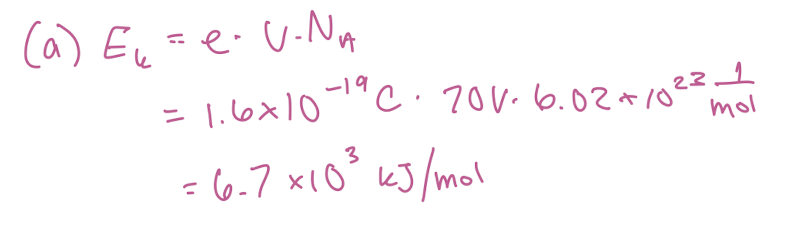 (a) Eₖ = e · V · N_A
= 1.6×10⁻¹⁹ C · 70V · 6.02×10²³ 1/mol
= 6.7 ×10³ kJ/mol